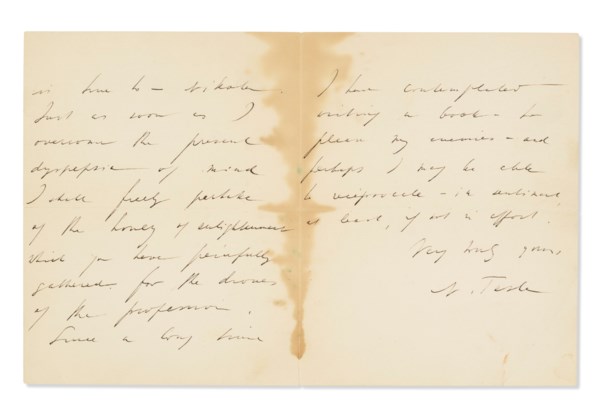 is due to – Nikola.
Just as soon as I
overcome the present
dyspepsia of mind
I shall freely partake
of the honey of enlightenment
which you have painfully
gathered for the drones
of the profession.
Since a long time
I have contemplated
writing a book – to
please my enemies – and
perhaps I may be able
to reciprocate – in sentiment
at least, if not in effort.
Very truly yours
N. Tesla